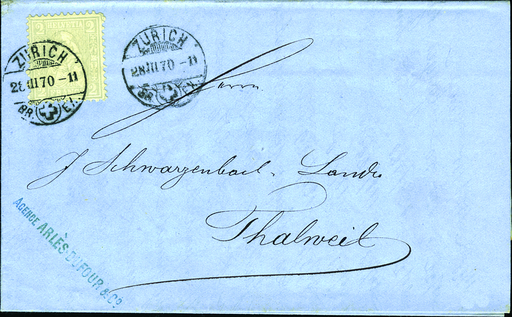 ZÜRICH
28 III 70 - 11
BR. EX.
ZÜRICH
28 III 70 - 11
BR. EX.
Herrn
J Schwarzenbach-Landis
Thalweil
AGENCE ARLÈS-DUFOUR & Cº